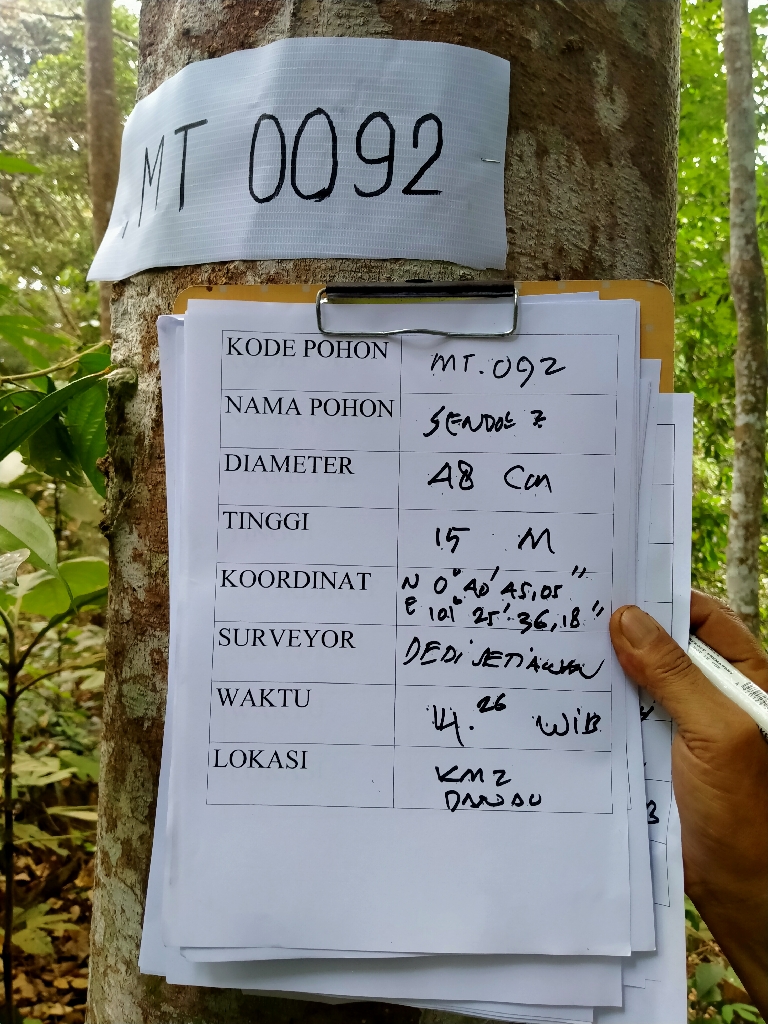 MT 0092
KODE POHON MT.092
NAMA POHON
DIAMETER 48 Cm
TINGGI 15 M
KOORDINAT N 0° 40' 45,05"
E 101° 25' 36,18"
SURVEYOR DEDi SETiAWAN
WAKTU 14.26 WiB
LOKASI KM 2
DANAU